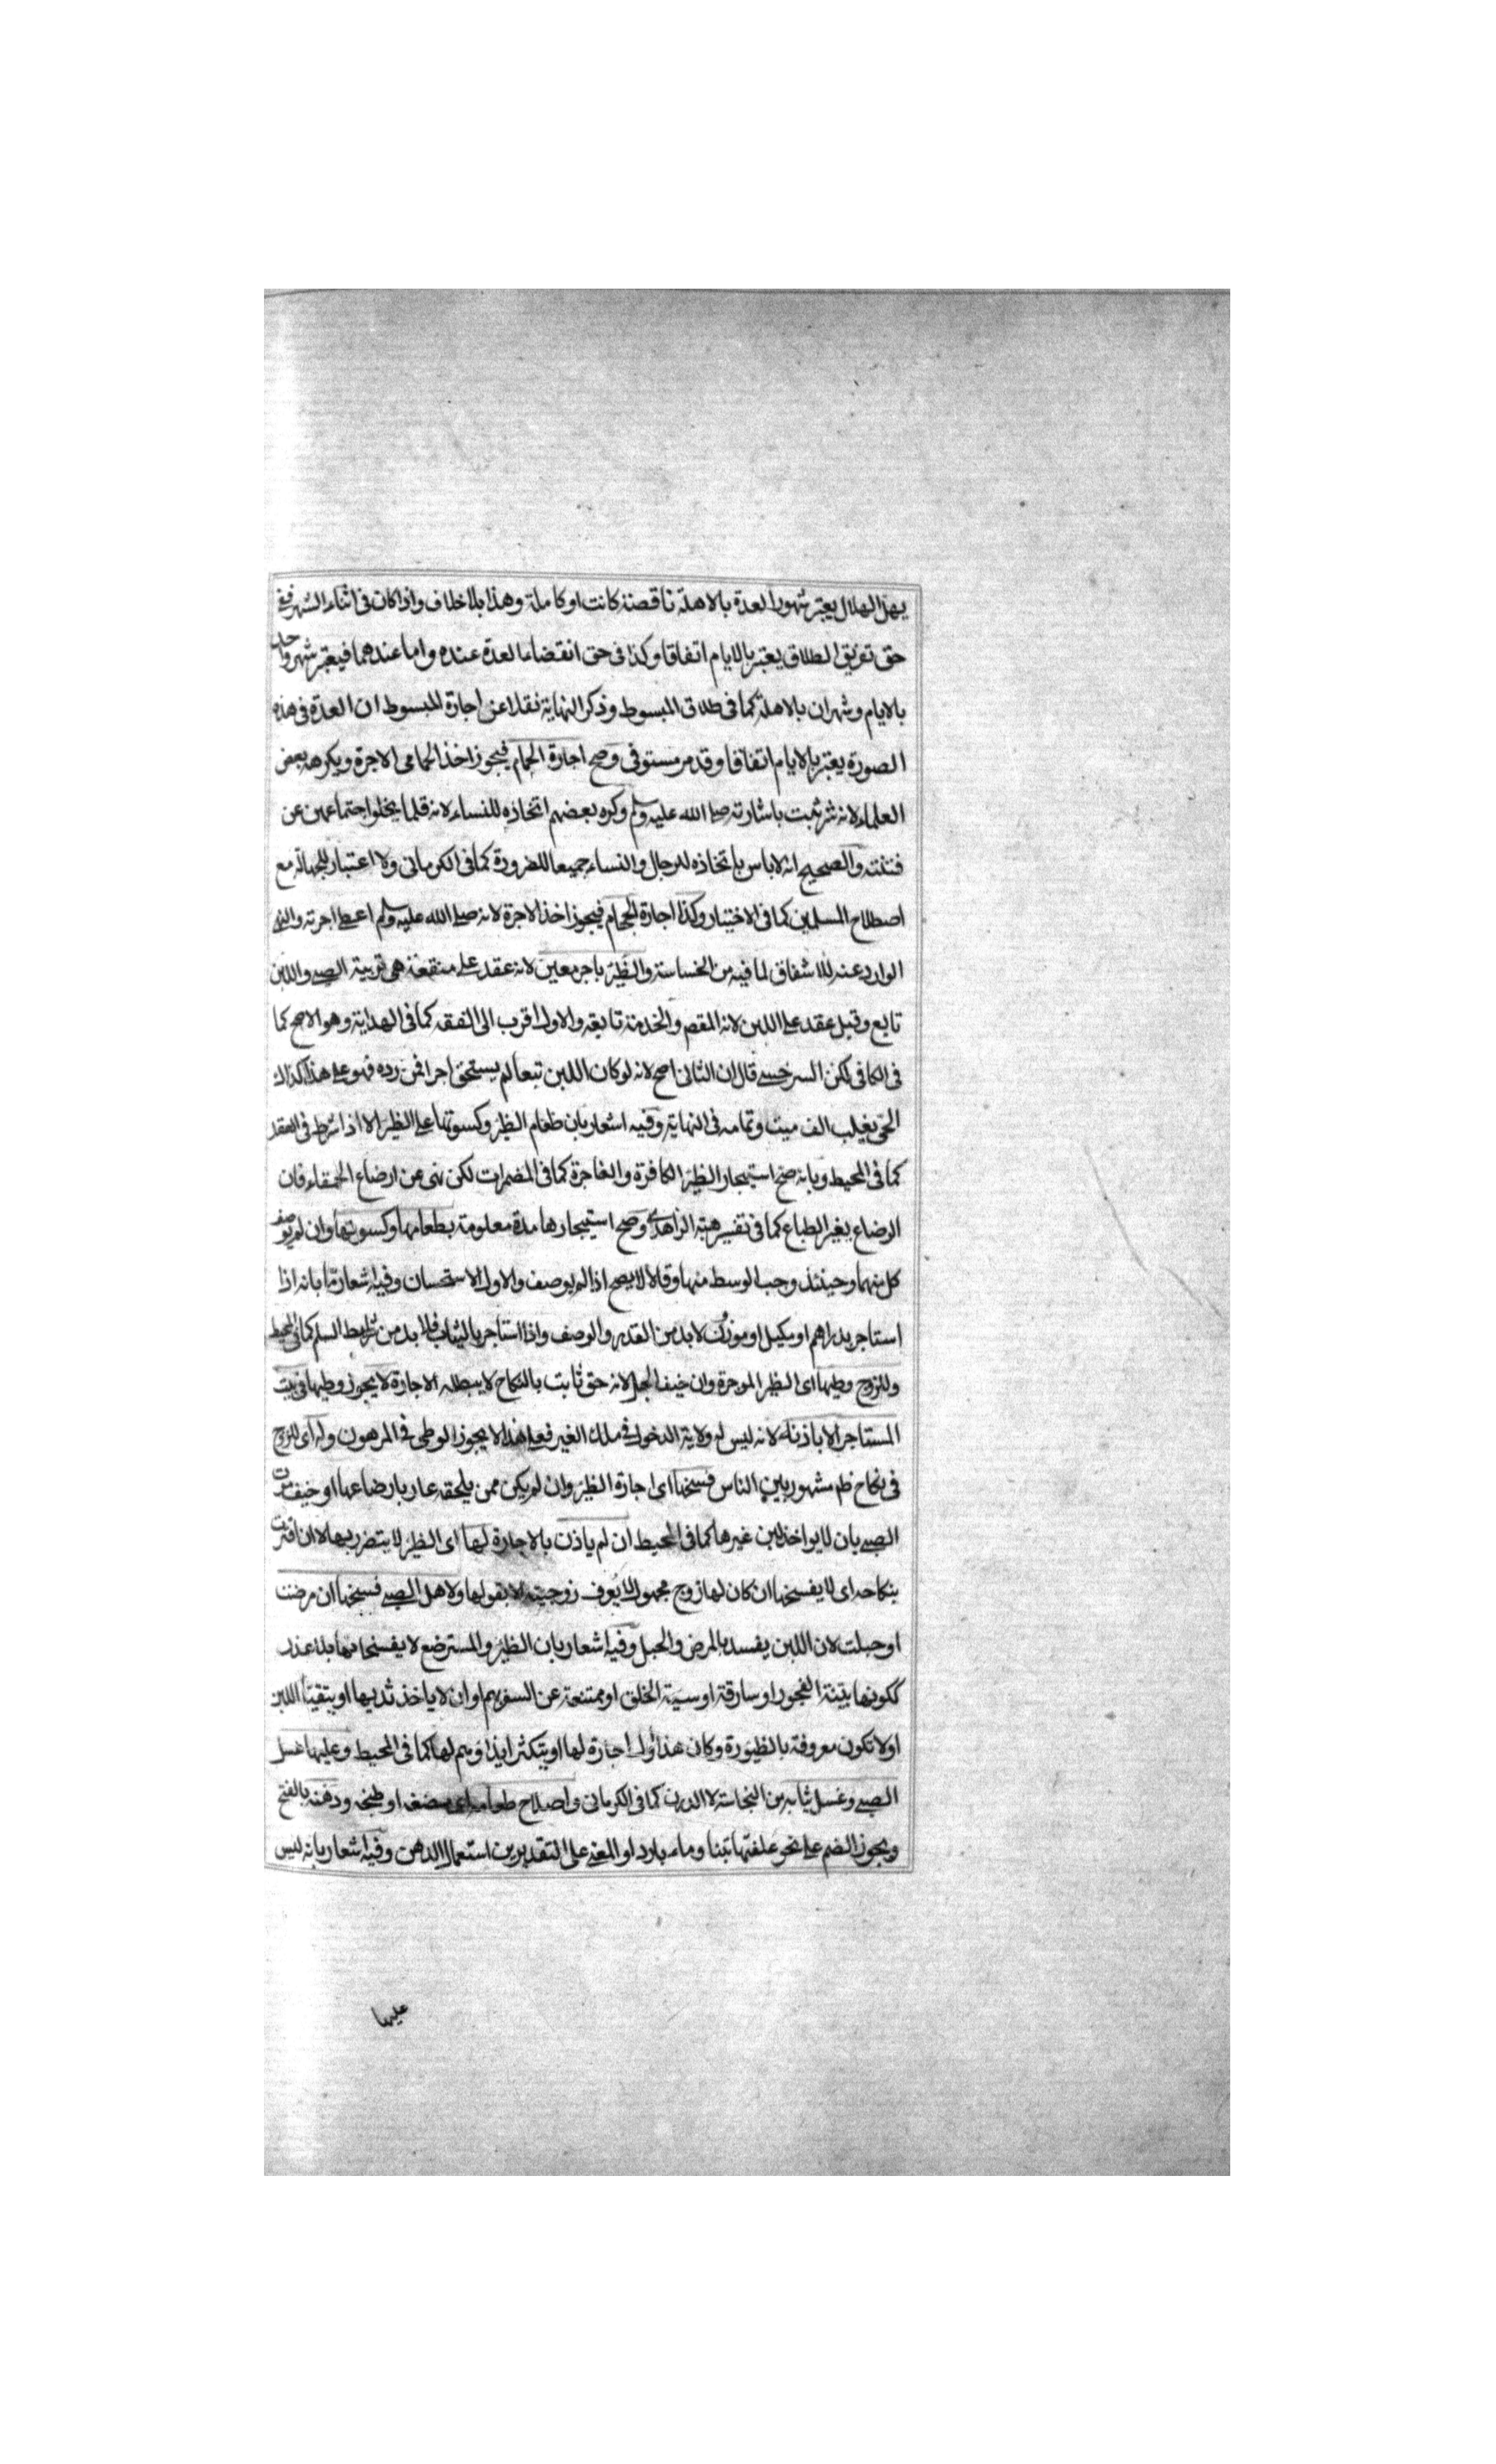 يهل الهلال يعتبر شهور العدة بالاهلة ناقصة كانت او كاملة وهذا بلا خلاف واذا كان فى اثناء الشهر ففى
حق تفريق الطلاق يعتبر بالايام اتفاقا وكذا فى حق انقضاء العدة عنده واما عندهما فيعتبر شهر واحد
بالايام وشهران بالاهلة كما فى طلاق المبسوط وذكر النهاية نقلا عن اجارة المبسوط ان العدة فى هذه
الصورة يعتبر بالايام اتفاقا وقد مر مستوفى وصح اجارة الحمام فيجوز اخذ الحمامى الاجرة ويكرهه بعض
العلماء لانه شر بيت باشارته صلى الله عليه وسلم وكره بعضهم اتخاذه للنساء لانه قلما يخلوا اجتماعهن عن
فتنته والصحيح انه لاباس باتخاذه للرجال والنساء جميعا للضرورة كما فى الكرمانى ولا اعتبار للجهالة مع
اصطلاح المسلمين كما فى الاختيار وكذا اجارة الحجام فيجوز اخذ الاجرة لانه صلى الله عليه وسلم اعطى اجرته والنهى
الوارد عنه للاشفاق لما فيه من الخساسة والظئر باجر معين لانه عقد على منفعة هى تربية الصبى واللبن
تابع وقيل عقد على اللبن لانه المقصم والخدمة تابعة والاول اقرب الى الفقه كما فى الهداية وهو الاصح كما
فى الكافى لكن السرخسى قال ان الثانى اصح لانه لو كان اللبن تبعا لم يستحق اجرا فمن رده فهو على هذا كذلك
الحى يغلب الف ميت وتمامه فى النهاية وفيه اشعار بان طعام الظئر وكسوتها على الظئر الا اذا شرط فى العقد
كما فى المحيط وبانه صح استيجار الظئر الكافرة والفاجرة كما فى المضمرات لكن نهى عن ارضاع الحمقاء فان
الرضاع يغير الطباع كما فى تفسير هبة الزاهدى وصح استيجارها مدة معلومة بطعامها وكسوتها وان لم يوصف
كل منهما وحينئذ وجب الوسط منها وقالا لا يصح اذا لم يوصف والاول الاستحسان وفيه اشعار ما بانه اذا
استاجر بدراهم او مكيل او موزون لا بد من القدر والوصف واذا استاجر بالثياب فلا بد من شرايط السلم كما فى المحيط
وللزوج وطيها اى الظئر الموجرة وان خيف الحبل لانه حق ثابت بالنكاح لا يبطله الاجارة لا يجوز وطيها فى بيت
المستاجر الا باذنه لانه ليس له ولاية الدخول فى ملك الغير فعلى هذا لا يجوز الوطى فى المرهون وله اى للزوج
فى نكاح ظم مشهور بين الناس فسخها اى اجارة الظئر وان لم يكن ممن يلحقه عار بارضاعها او خيف موت
الصبى بان لا يواخذ لبن غيرها كما فى المحيط ان لم ياذن بالاجارة لها اى الظئر لا يتضرر بها لا ان اقرت
بنكاحه اى لا يفسخها ان كان لها زوج مجهول لا يعرف زوجيته الا بقولها ولاهل الصبى فسخها ان مرضت
او حبلت لان اللبن يفسد بالمرض والحبل وفيه اشعار بان الظئر والمسترضع لا يفسخانها بلا عذر
ككونها بينة الفجور او سارقة او سيئة الخلق او ممتنعة عن السفر بهم او ان لا ياخذ ثديها او يتقيا اللبن
او لا تكون معروفة بالظيورة وكان هذا اول اجارة لها او يتكثر ايذاؤهم لها كما فى المحيط وعليها غسل
الصبى وغسل ثيابه من النجاسة لا الدرن كما فى الكرمانى واصلاح طعامه اى مضغه او طبخه ودهنه بالفتح
ويجوز الضم على نحو علفتها تبنا وماء باردا والمعنى على التقديرين استعمال الدهن وفيه اشعار بانه ليس
عليها